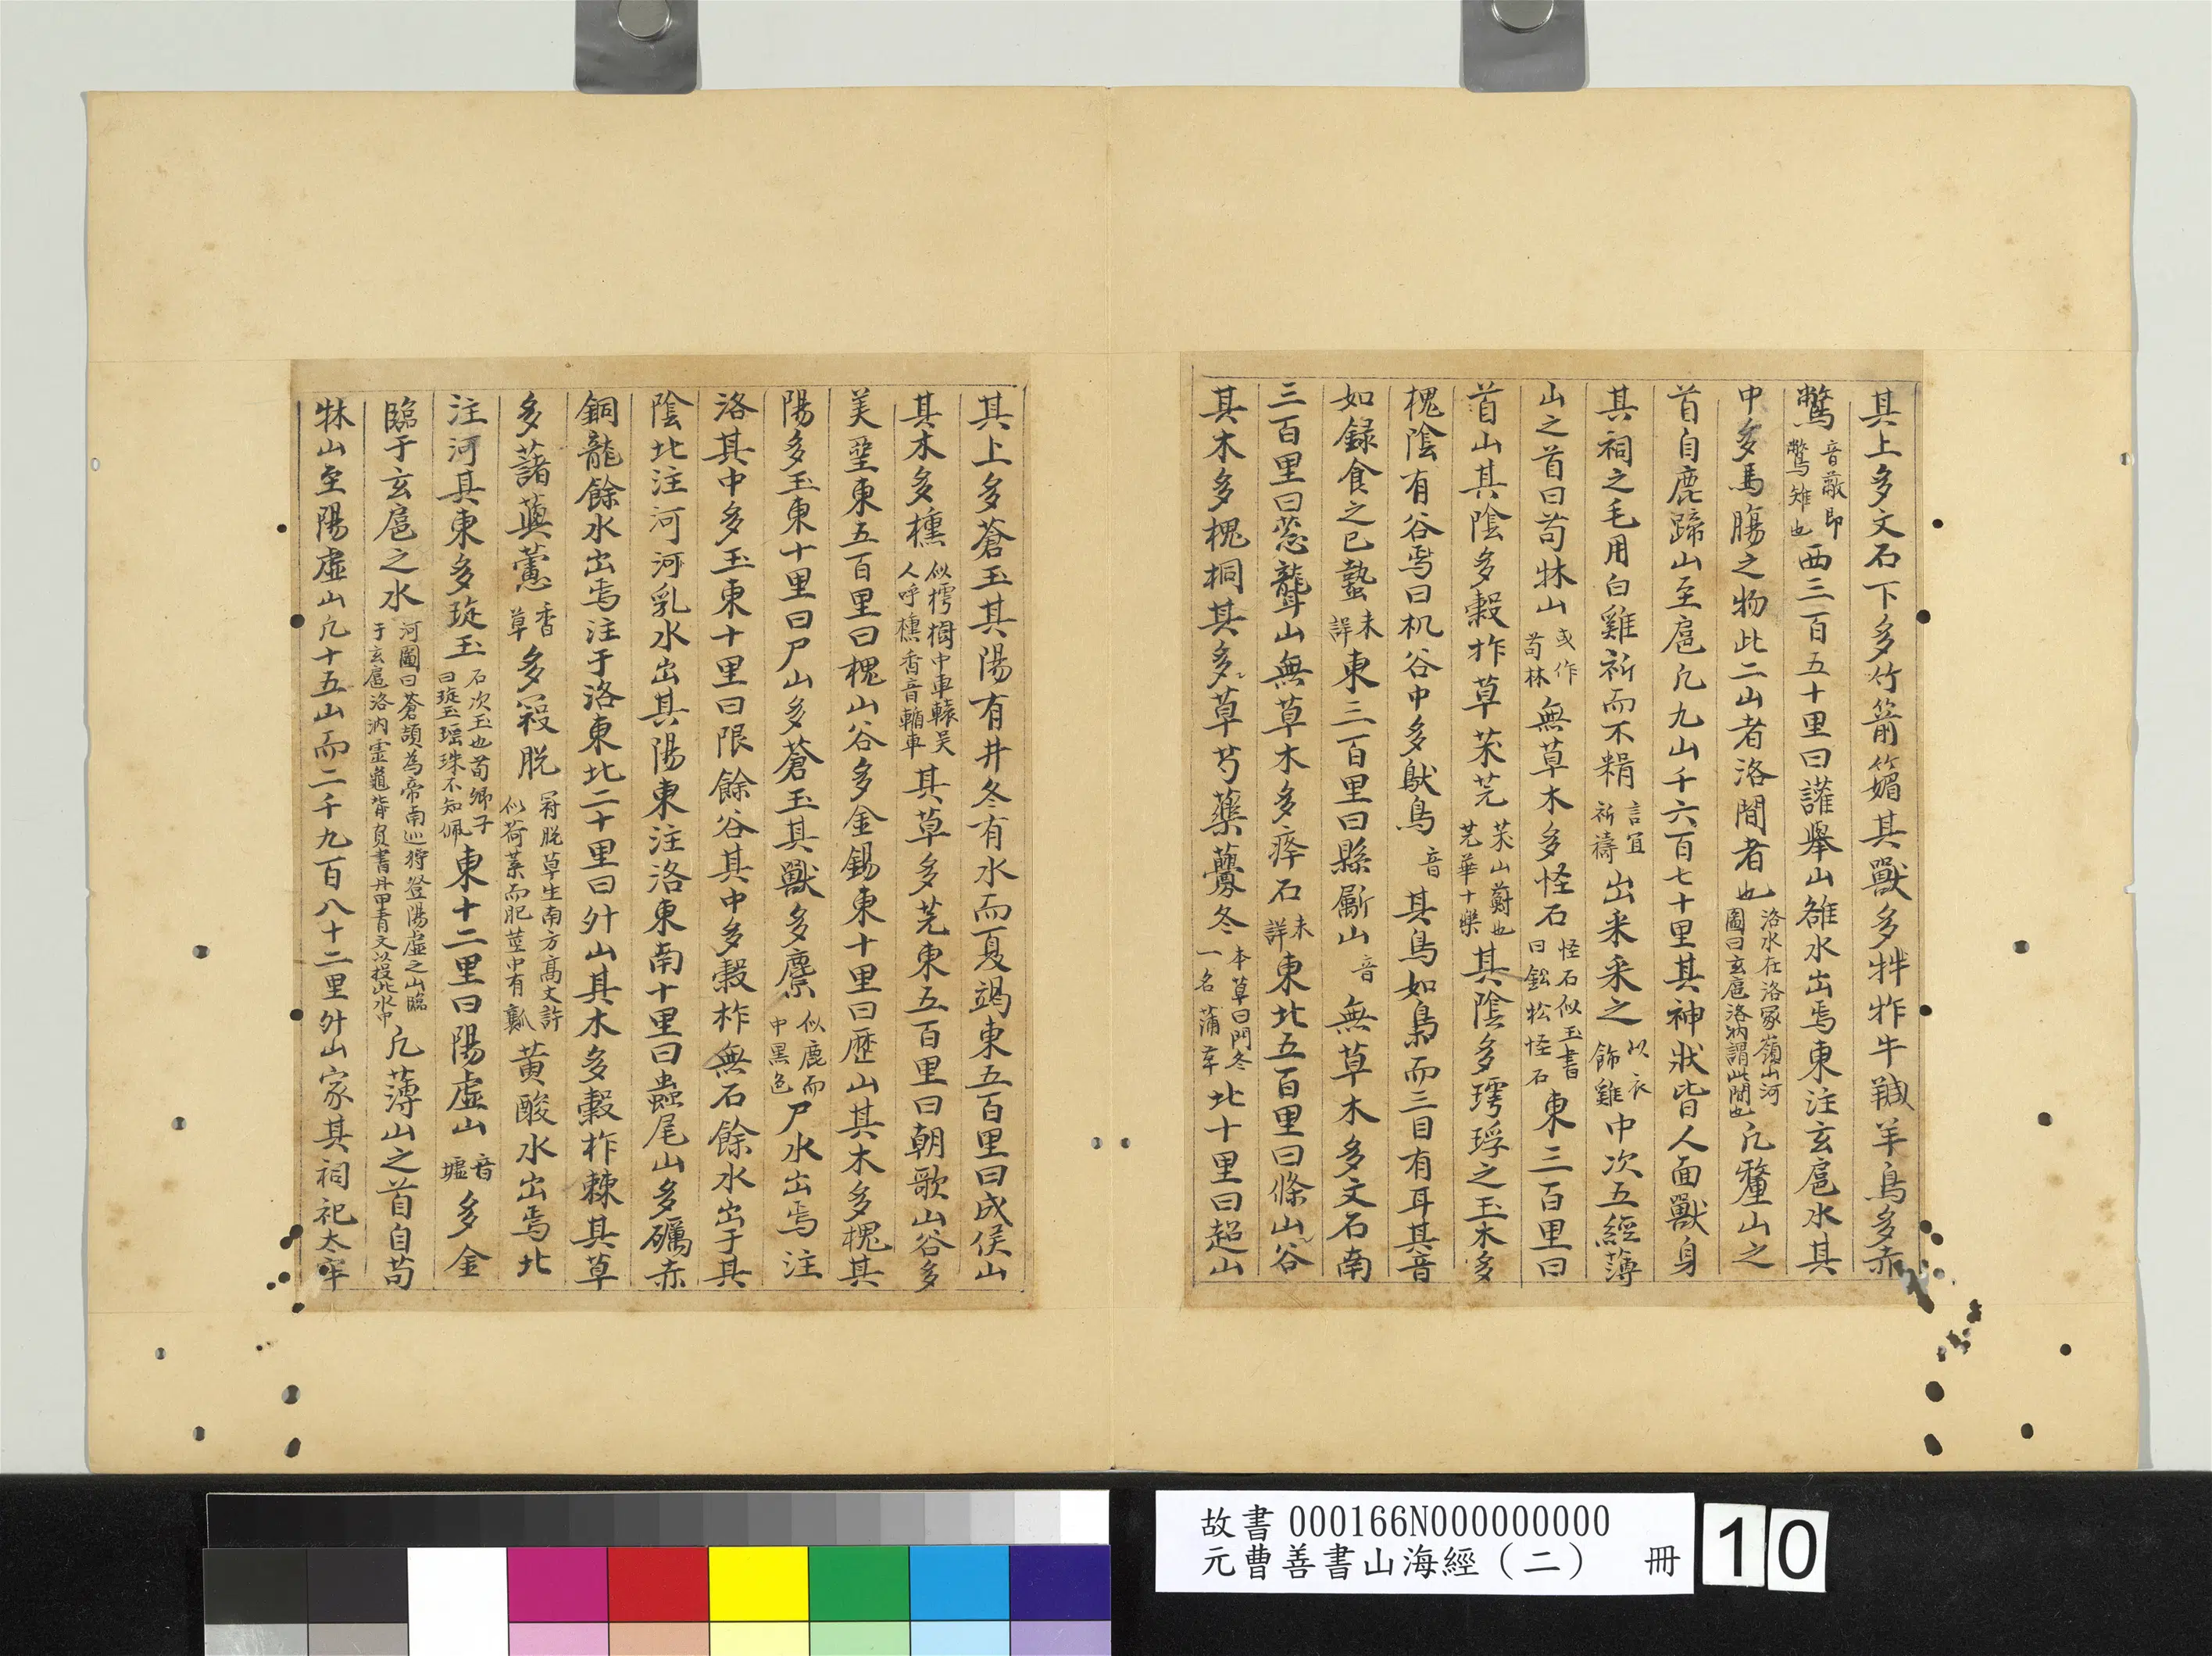 其上多文石下多竹箭䉋其獸多㸲牛羬羊鳥多赤
鷩音蔽即鷩雉也西三百五十里曰讙舉山雒水出焉東注玄扈水其
中多馬膓之物此二山者洛間者也洛水在洛冢嶺山河圖曰玄扈洛汭謂此間也凡釐山之
首自鹿蹄山至扈凡九山千六百七十里其神狀皆人面獸身
其祠之毛用白雞祈而不糈言宜祈禱出采采之以衣飾雞中次五經薄
山之首曰苟牀山或作苟林無草木多怪石怪石似玉書曰鈆松怪石東三百里曰
首山其陰多榖柞草茉芫茉山薊也芫華十樂其陰多㻬琈之玉木多
槐陰有谷焉曰机谷中多䲦鳥音其鳥如梟而三目有耳其音
如録食之已蟄未詳東三百里曰縣斸山音無草木多文石南
三百里曰蔥聾山無草木多㻗石未詳東北五百里曰條山谷
其木多槐桐其多草芍藥虋冬本草曰門冬一名蒲苯北十里曰超山
其上多蒼玉其陽有井冬有水而夏竭東五百里曰成侯山
其木多櫄似樗樹中車轅吴人呼櫄香音輴車其草多芃東五百里曰朝歌山谷多
美堊東五百里曰槐山谷多金錫東十里曰歷山其木多槐其
陽多玉東十里曰尸山多蒼玉其獸多麖似鹿而中黑色尸水出焉注
洛其中多玉東十里曰限餘谷其中多榖柞無石餘水出于其
陰北注河河乳水出其陽東注洛東南十里曰蠱尾山多礪赤
銅龍餘水出焉注于洛東北二十里曰升山其木多榖柞棘其草
多藷藇蕙香草多寇脱㓂脱草生南方高丈許似荷葉而肥莖中有瓤黄酸水出焉北
注河其東多琁玉石次玉也荀卿子曰琁玉瑶珠不知佩東十二里曰陽虚山音墟多金
臨于玄扈之水河圖曰蒼頡為帝南巡狩登陽虚之山臨于玄扈洛汭靈龜背負書丹甲青文以授此水中凡薄山之首自苟
牀山至陽虚山凡十五山而二千九百八十二里升山冢其祠祀太牢
故書000166N000000000
元曹善書山海經（二） 冊 10